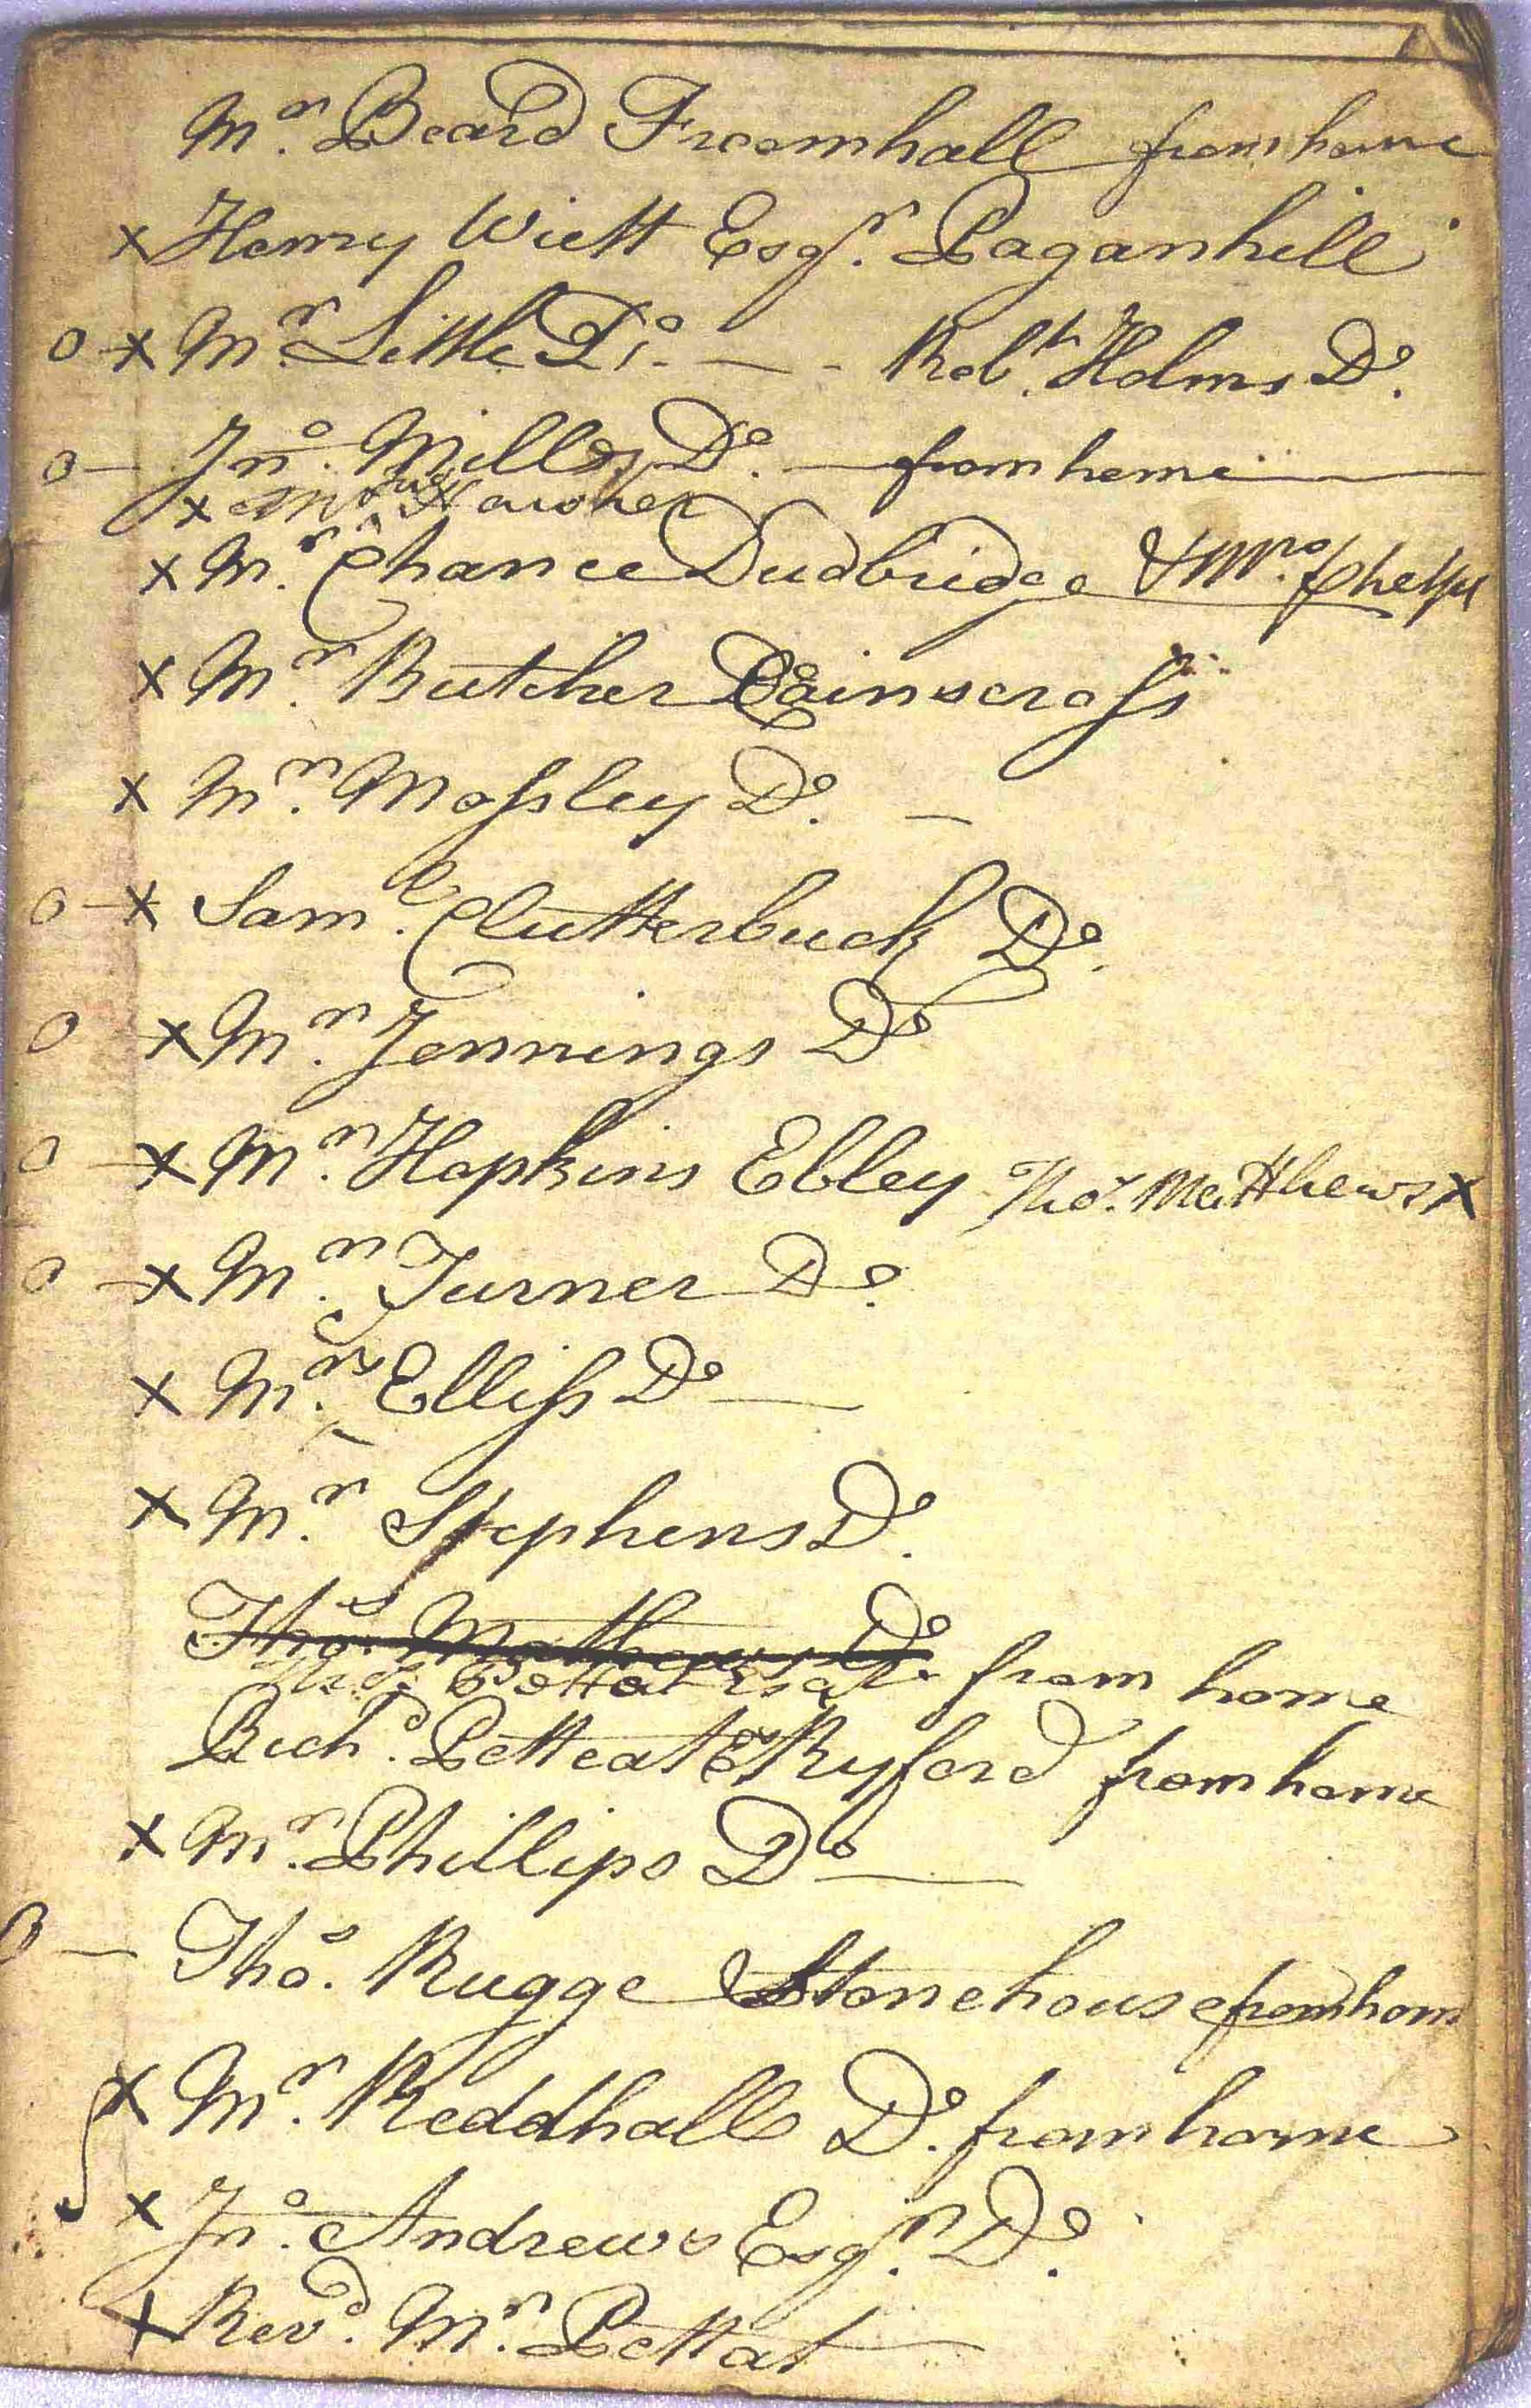 Mr. Beard Froomhall from home
x Henry Wiett Esqr. Paganhill
o x Mr. Little Do. - Robt. Holms Do.
o - Jno. Mills Do. - from home
x Hawker
x Mr. Chance Dudbridge & Mrs. Phelps
x Mr. Butcher Cainscross
x Mr. Mossley Do. -
o - x Saml. Clutterbuck Do.
o x Mr. Jennings Do
o - x Mr. Hopkins Ebley Thos. Matthews x
o - x Mr. Turner Do.
x Mrs. Elliss Do -
x Mr. Stephens Do.
Thos. Mathews Do.
Thos. Pettat Esqr. from home
Richd. Petteat Esq Ryford from home
x Mr. Phillips Do -
o - Thos. Rugge Stonehouse from hom
x Mr. Reddhall Do. from home
x Jno. Andrews Esqr. Do.
x Revd. Mr. Pettat